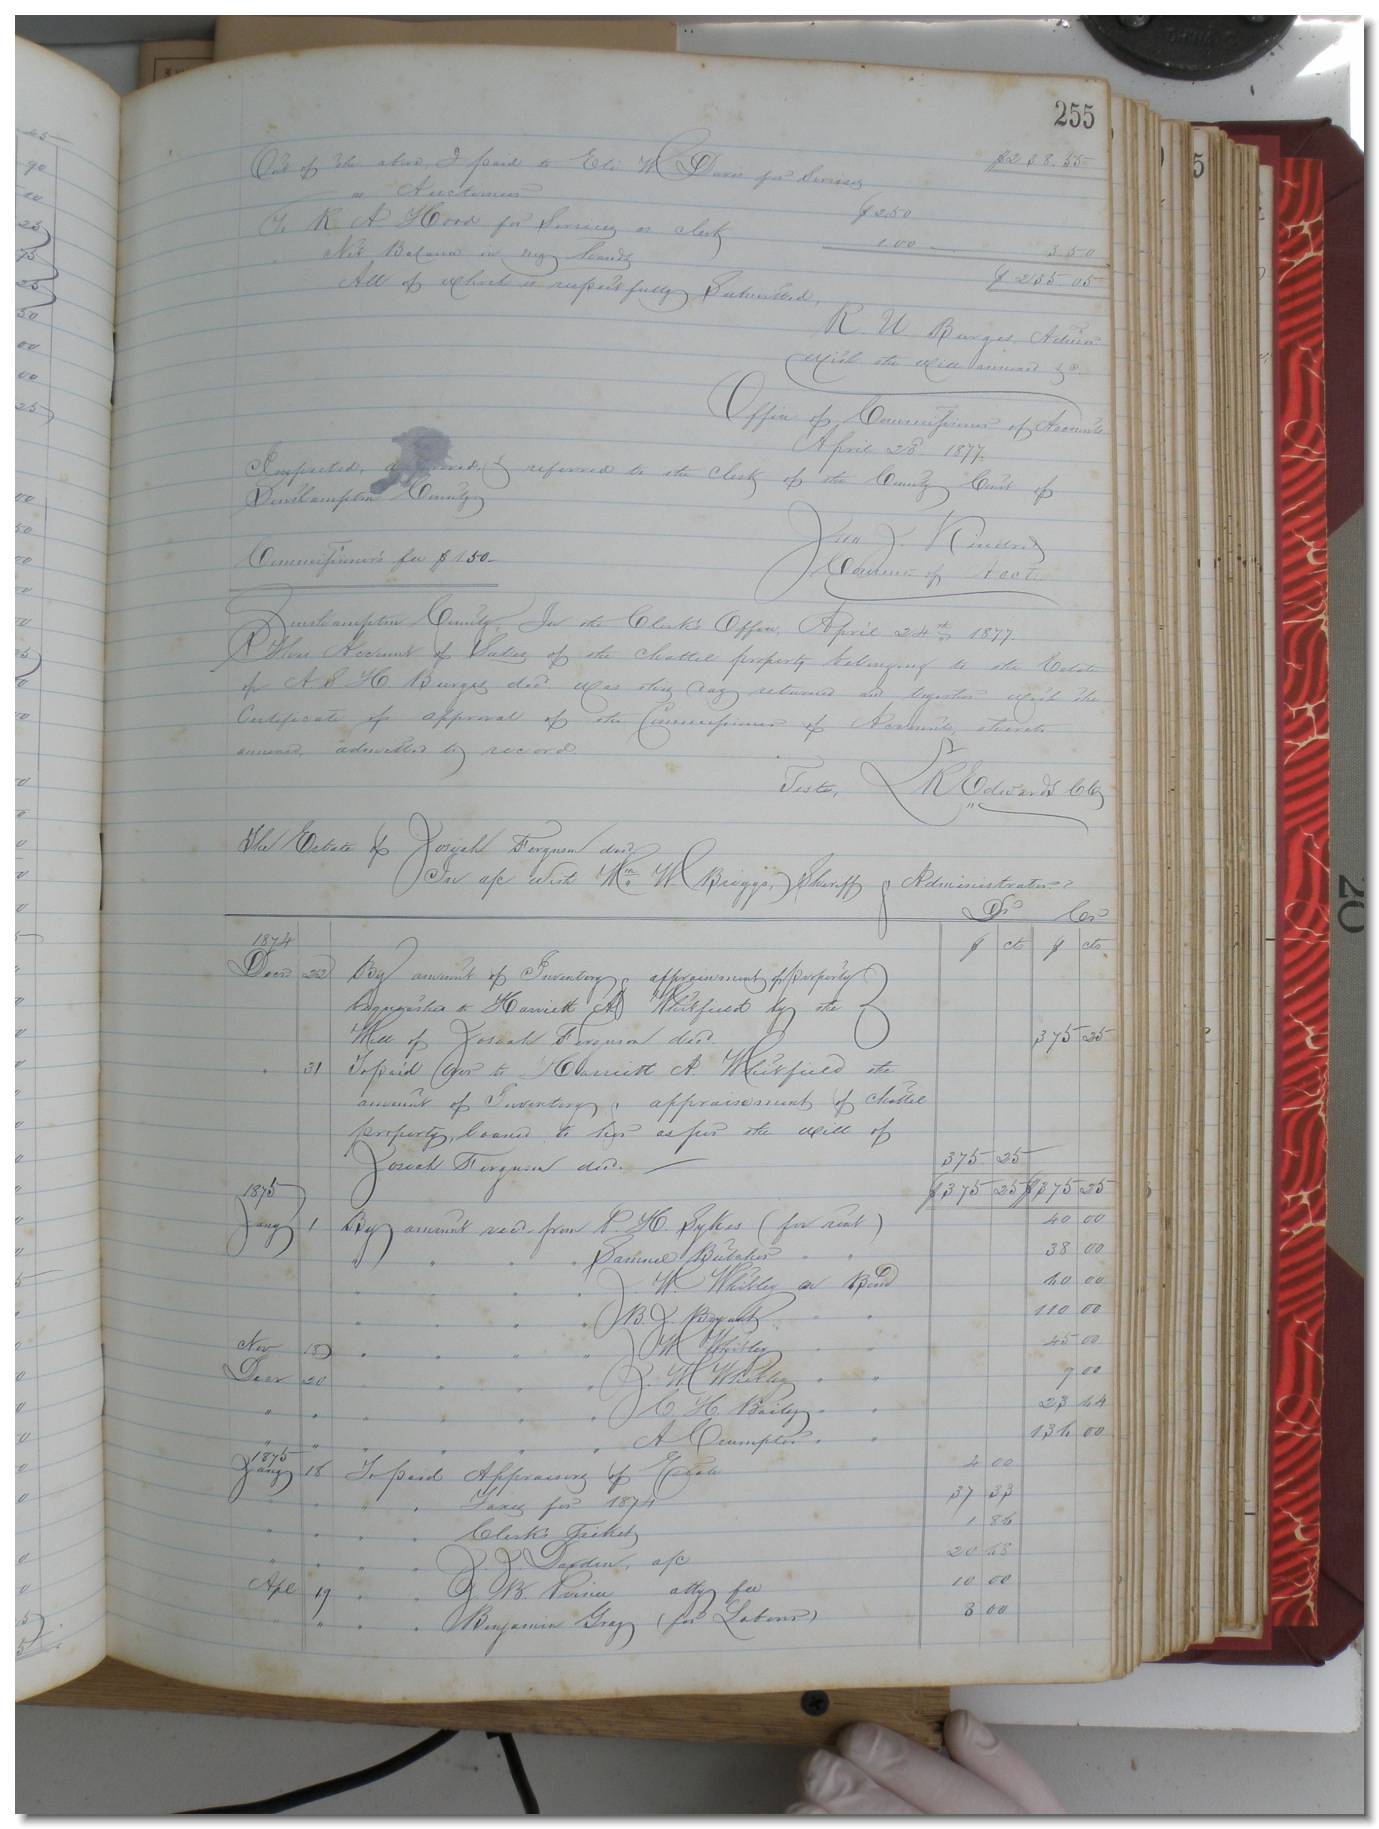 255
Out of the above I paid to Eli W Davis for Services $238.55
as Auctioneer $2.50
To R A Hood for Services as clerk 1.00 3.50
Net Balance in my hands $235.05
All of which is respectfully Submitted,
R U Burges Admr
with the will annexed &c.
Office of Commissioner of Accounts
April 23d 1877.
Inspected, approved, & referred to the clerk of the County Court of
Southampton County
Jno J. Kindred
Commr of Acct.
Commissioner's fee $1.50
Southampton County, In the Clerk's Office, April 24th 1877.
This Account of Sales of the chattel property belonging to the Estate
of A S H Burges decd. was this day returned and together with the
Certificate of approval of the Commissioner of Accounts, thereto
annexed, admitted to record.
Teste, L R Edwards Clk
The Estate of Josiah Ferguson decd.
In a/c with Wm W Briggs, Sheriff & Administrator
Dr Cr
1874 $ cts $ cts
Decr 22 By amount of Inventory & appraisement of property
bequeathed to Harriett A Whitfield by the
Will of Josiah Ferguson decd. 375 25
" 31 To paid over to Harriett A. Whitfield the
amount of Inventory & appraisement of chattel
property, loaned to her as per the will of
Josiah Ferguson decd. 375 25
1875 $375 25 $375 25
Jany 1 By amount recd. from P. H. Sykes (for rent) 40 00
" " " " Samuel Butcher " " 38 00
" " " " J. W. Whitley on Bond 60 00
" " " " B. J. Bryant " " 110 00
Nov 15 " " " " J W Whitley " " 45 00
Decr 20 " " " " J. W Whitley " " 7 00
" " " " " " C H Bailey " " 23 64
" " " " " " A Crumpler " " 136 00
1875
Jany 18 To paid Appraisers of Estate 4 00
" " " Taxes for 1874 37 33
" " " Clerk's Tickets 1 86
" " " J. J. Darden, a/c 20 68
Apl 19 " " J B. Prince atty fee 10 00
" " " " Benjamin Gray (for Labour) 8 00